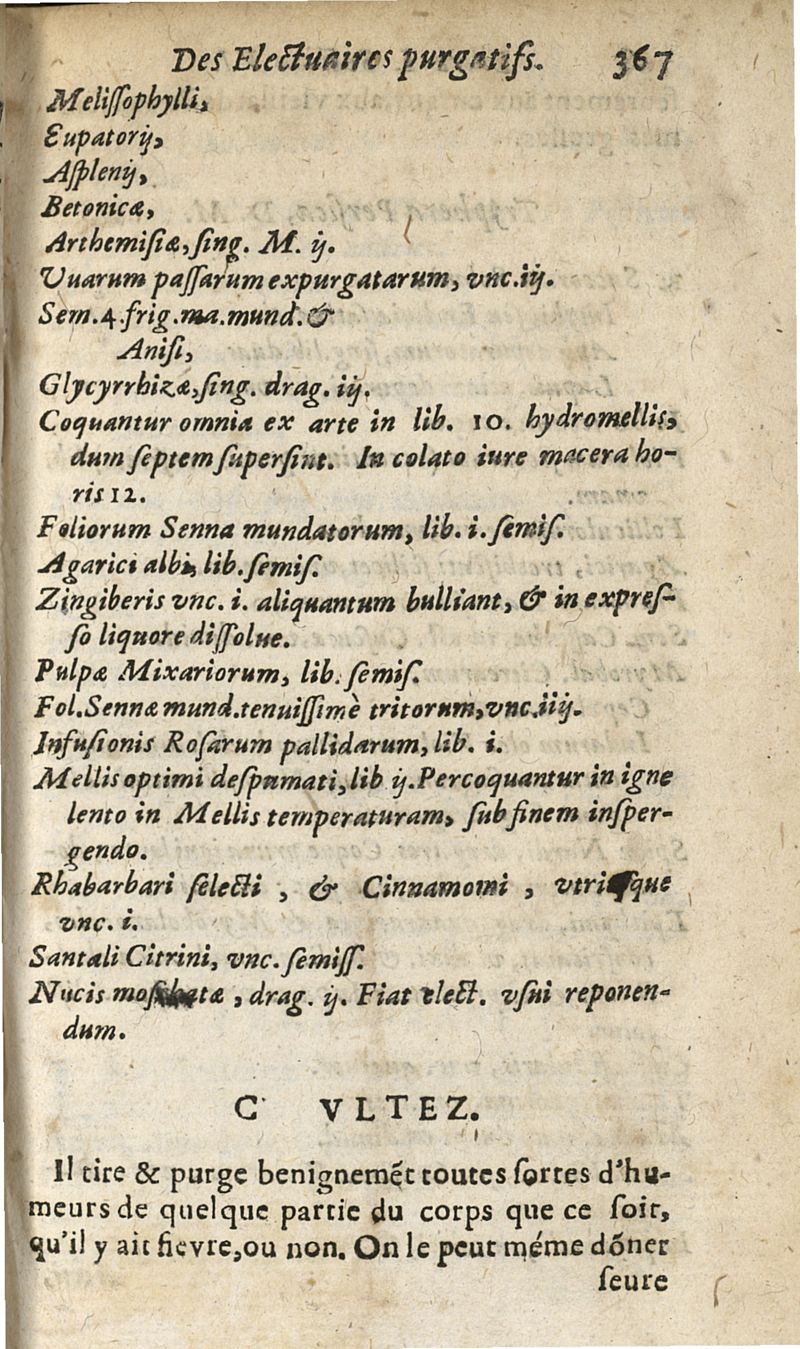 Des Electuaires purgatifs. 367
Melissophylli,
Eupatorij,
Asplenij,
Betonicæ,
Arthemisiæ, sing. M. ij.
Vuarum passarum expurgatarum, vnc. iij.
Sem. 4. frig. ma. mund. &
Anisi,
Glycyrrhizæ, sing. drag. iij.
Coquantur omnia ex arte in lib. 10. hydromellis,
dum septem supersint. In colato iure macera ho-
ris 12.
Foliorum Senna mundatorum, lib. i. semis.
Agarici albi, lib. semis.
Zingiberis vnc. i. aliquantum bulliant, & in expres-
so liquore dissolue.
Pulpæ Mixariorum, lib. semis.
Fol. Sennæ mund. tenuissimè tritorum, vnc. iiij.
Infusionis Rosarum pallidarum, lib. i.
Mellis optimi despumati, lib ij. Percoquantur in igne
lento in Mellis temperaturam, sub finem insper-
gendo.
Rhabarbari selecti , & Cinnamomi , vtriusque
vnc. i.
Santali Citrini, vnc. semiss.
Nucis moschatæ , drag. ij. Fiat elect. vsui reponen-
dum.
C VLTEZ.
Il tire & purge benignemẽt toutes sortes d'hu-
meurs de quelque partie du corps que ce soit,
qu'il y ait fievre, ou non. On le peut méme dõner
seure